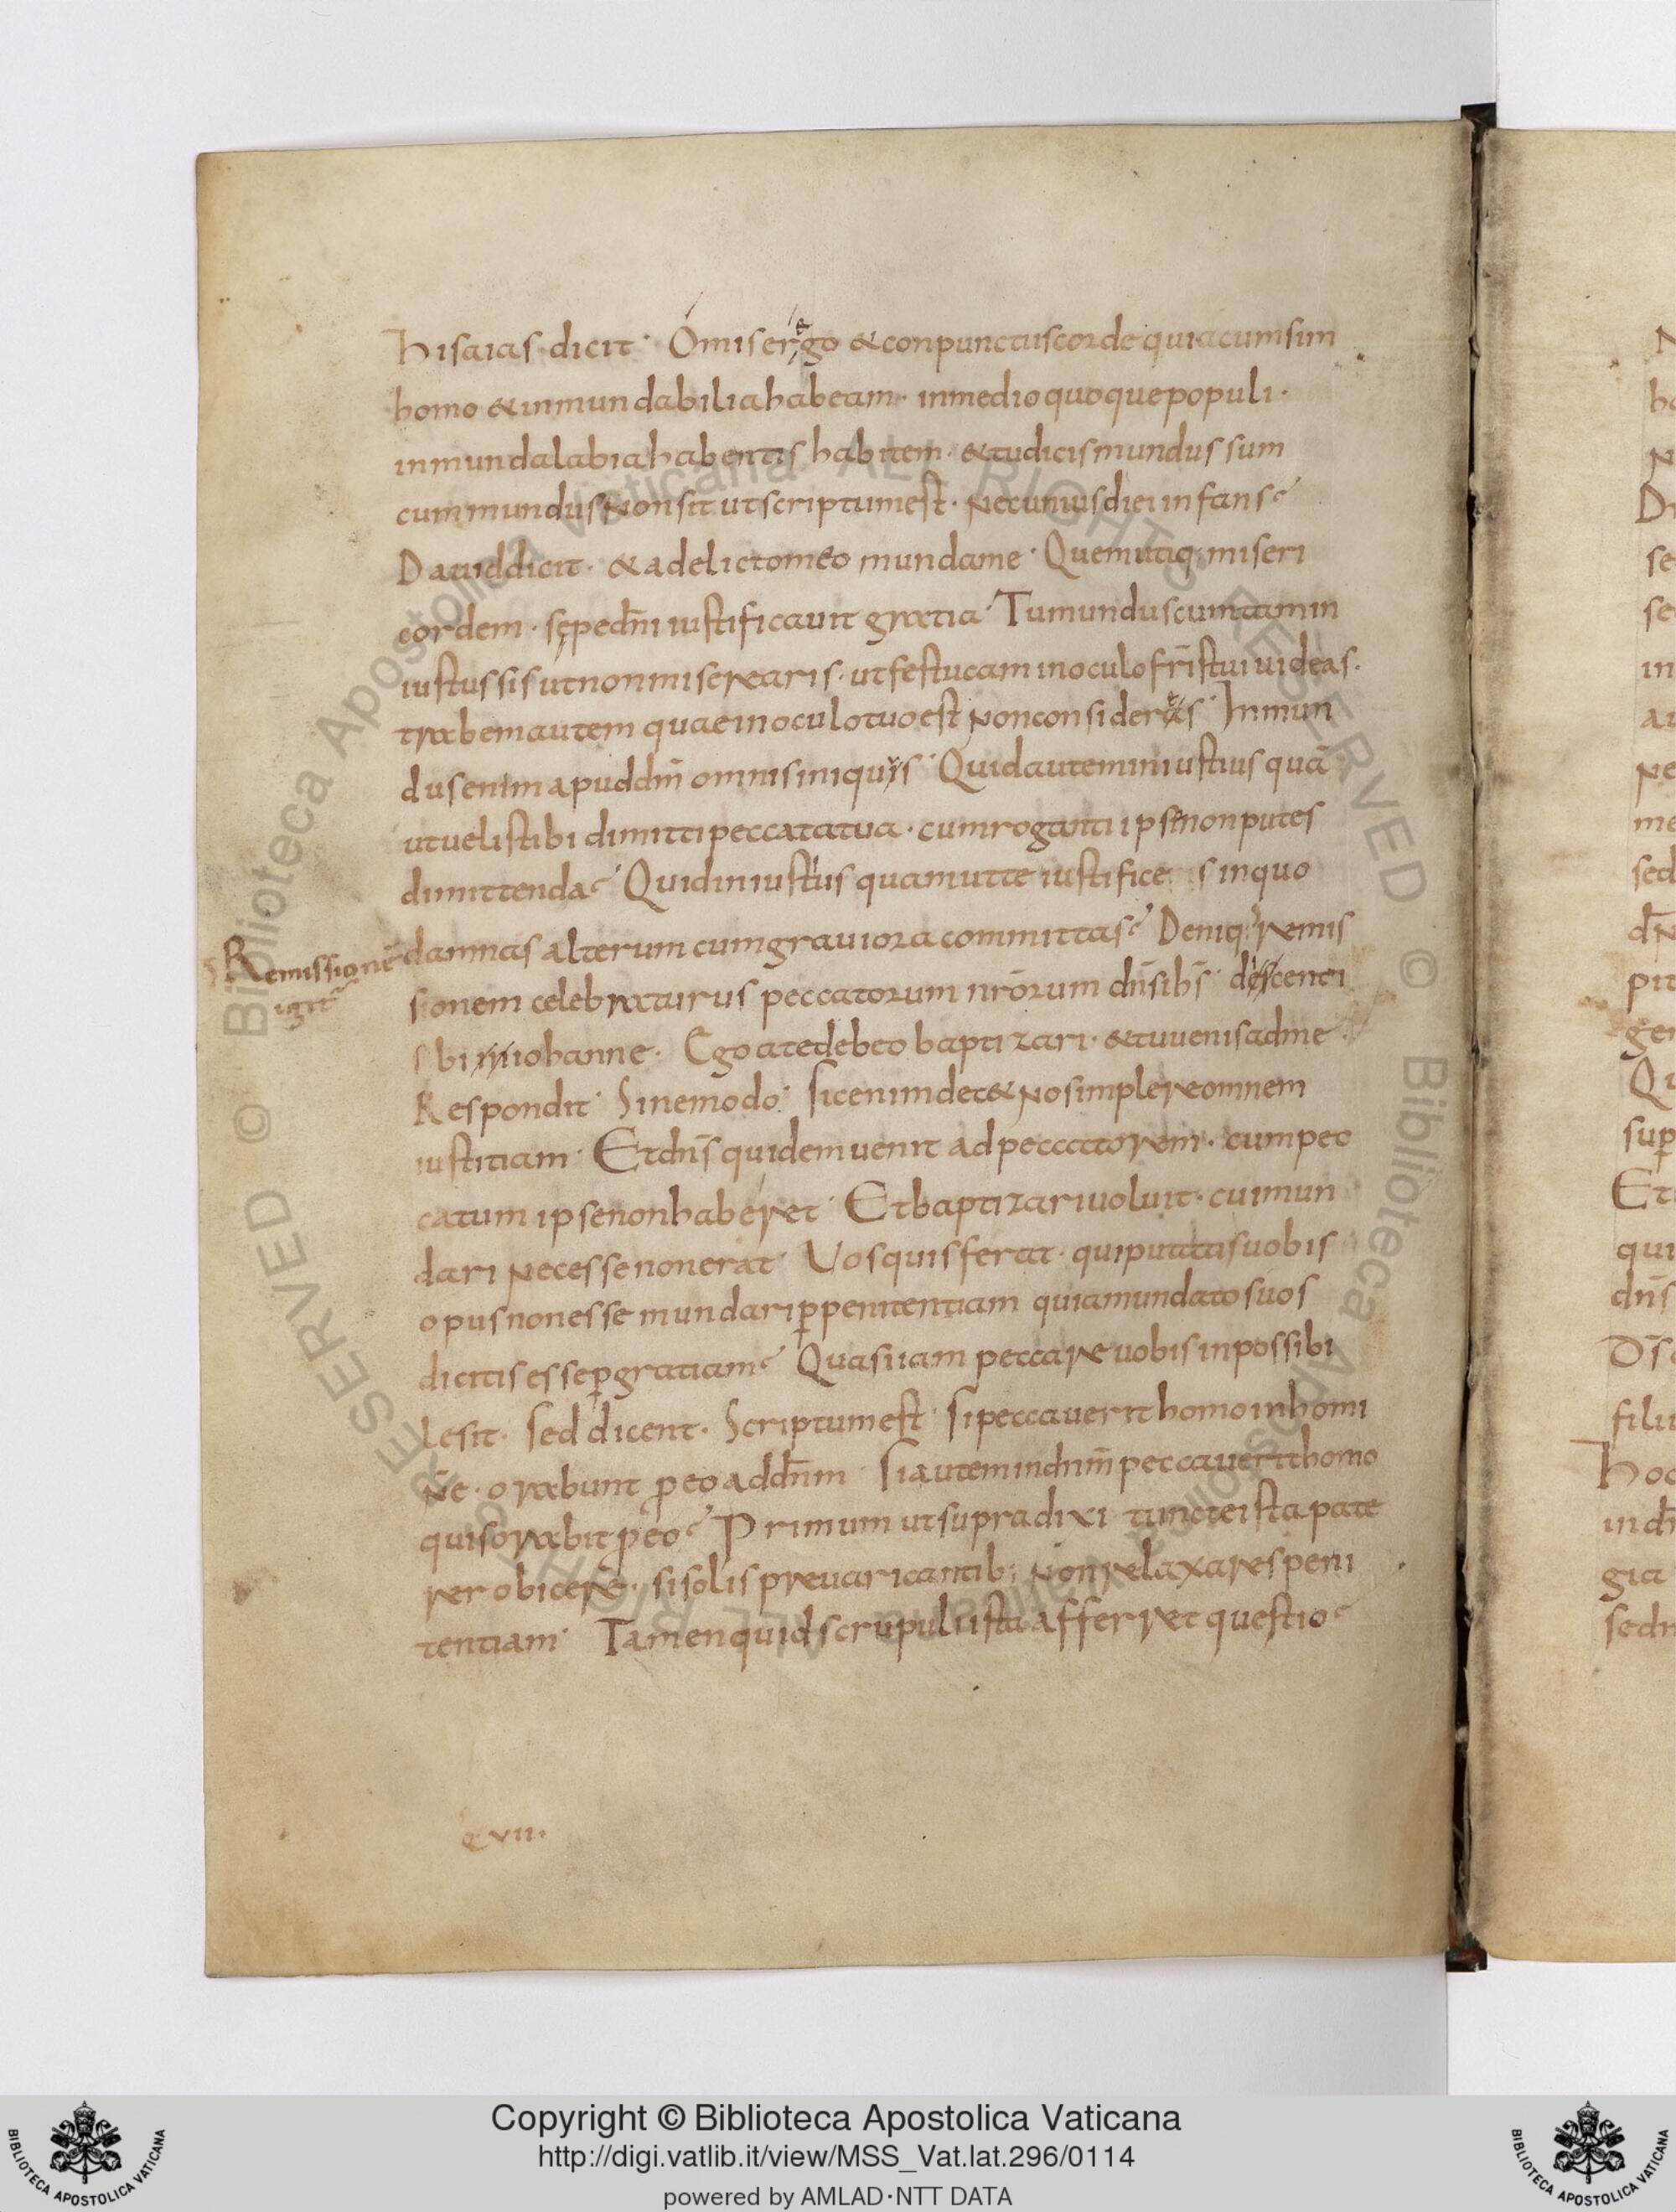 hisaias dicit · O miser ego & conpunctus corde quia cum sim
homo & inmunda bilia habeam · in medio quoque populi ·
inmunda labia habentis habitem · & tu dicis mundus sum
cum mundus non sit ut scriptum est · nec unius diei infans
Dauid dicit · & a delicto meo munda me · Quem utiq; miseri
cordem · sępe dn̄i iustificauit gratia · Tu mundus cum tam in
iustus sis ut non miserearis · ut festucam in oculo fr̄is tui uideas ·
trabem autem quae in oculo tuo est non consideres · Inmun
dus enim apud dm̄ omnis iniquus · Quid autem iniustius quā
ut uelis tibi dimitti peccata tua · cum roganti ipse non putes
dimittenda · Quid iniustius quam ut te iustifices in quo
damnas alterum cum grauiora committas · Deniq; remis
sionem celebraturus peccatorum nr̄orum dn̄s ih̄s · dicenti
sibi iohanne · Ego a te debeo baptizari · & tu uenis ad me ·
Respondit · Sine modo · sic enim decet nos implere omnem
iustitiam · Et dn̄s quidem uenit ad peccatorem · cum pec
catum ipse non haberet · Et baptizari uoluit · cui mun
dari necesse non erat · Vos quis ferat · qui putatis uobis
opus non esse mundari p̱ penitentiam quia mundatos uos
dicitis esse p̱ gratiam · Quasi iam peccare uobis inpossibi
le sit · sed dicent · Scriptum est · si peccauerit homo in homi
ne · orabunt p̱ eo ad dn̄m · si autem in dn̄m peccauerit homo
quis orabit p̱ eo · Primum ut supra dixi tunc te ista pate
rer obicere · si solis preuaricantib; non relaxares peni
tentiam · Tamen quid scrupuli ista afferret questio
Remissionē
igit̄
q VII ·
Copyright © Biblioteca Apostolica Vaticana
http://digi.vatlib.it/view/MSS_Vat.lat.296/0114
powered by AMLAD·NTT DATA
BIBLIOTECA APOSTOLICA VATICANA
BIBLIOTECA APOSTOLICA VATICANA
© Biblioteca Apostolica Vaticana ALL RIGHTS RESERVED
© Biblioteca Apostolica Vaticana ALL RIGHTS RESERVED